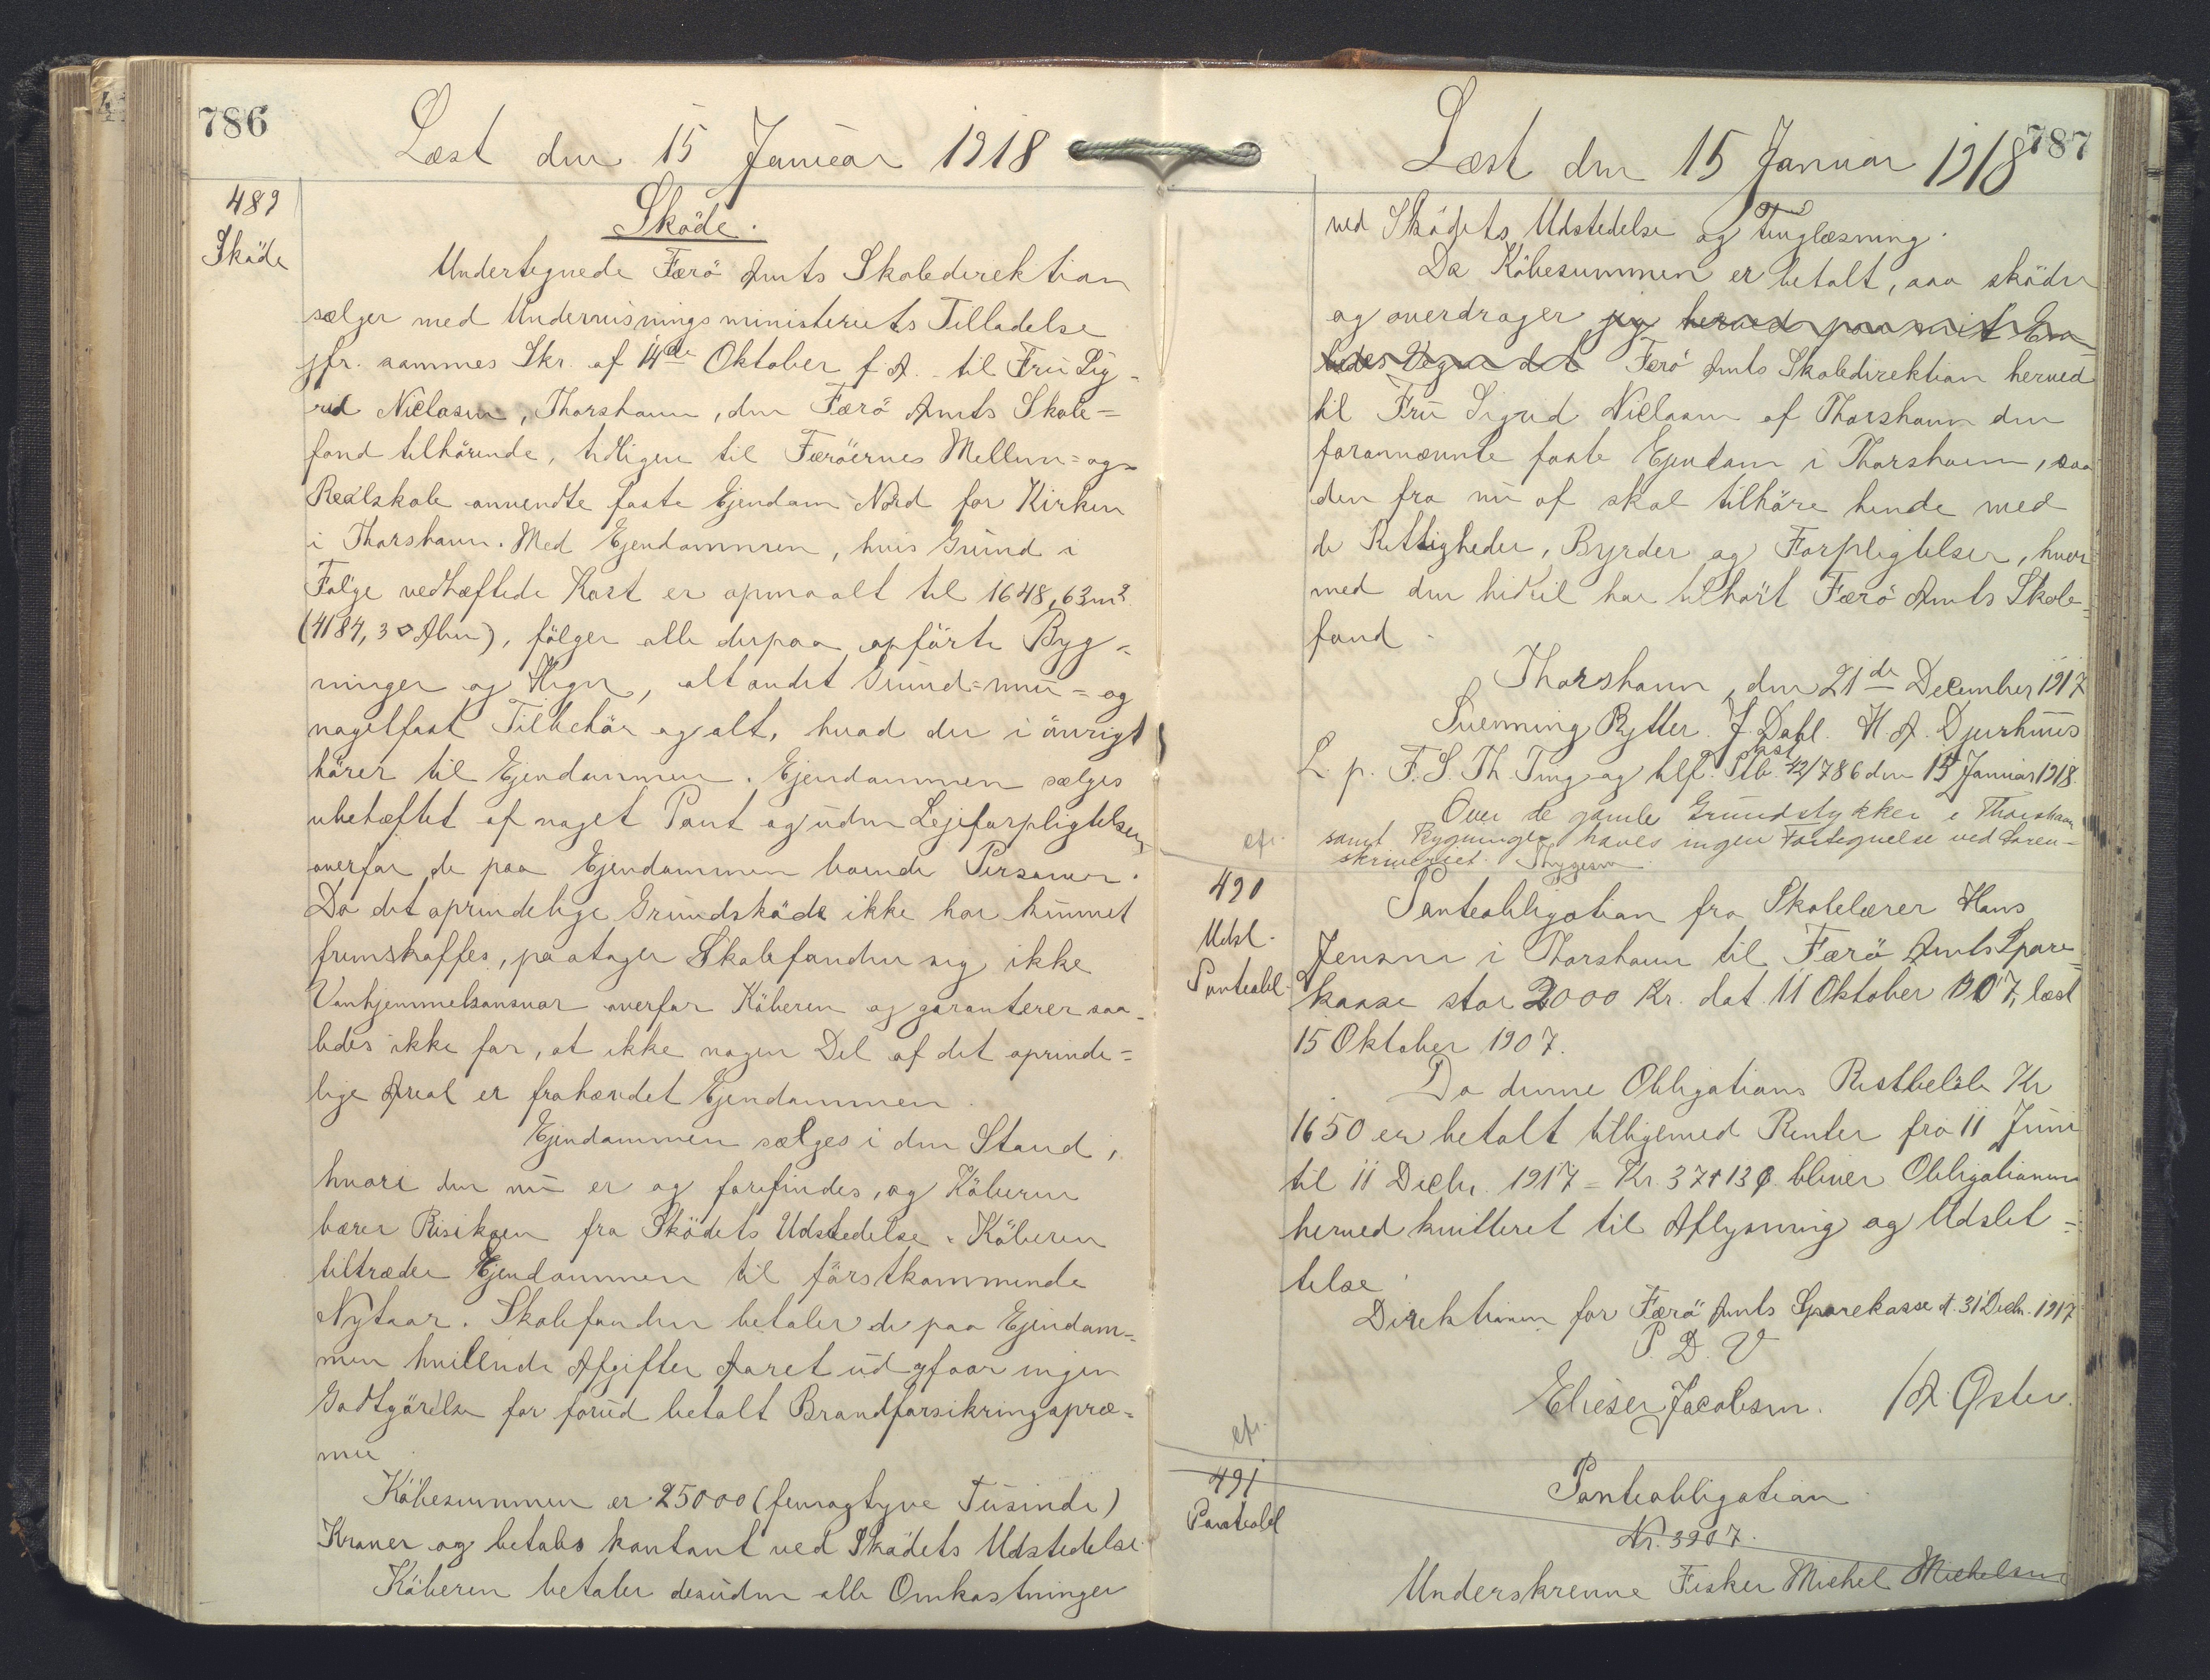 786
Læst den 15 Januar 1918
489
Sköde
Sköde.
Undertegnede Færö Amts Skoledirektion
sælger med Undervisningsministeriets Tilladelse
jfr. sammes Skr. af 14de Oktober f. A. til Fru Sig-
rid Niclasen, Thorshavn, den Færö Amts Skole=
fond tilhörende, tidligere til Færöernes Mellem= og
Realskole anvendte faste Ejendom Nord for Kirken
i Thorshavn. Med Ejendommen, hvis Grund i
Fölge vedhæftede Kort er opmaalt til 1648,63 m²
(4184,3 □ Alen), fölger alle derpaa opförte Byg=
ninger og Hegn, alt andet Grund= mur= og
nagelfast Tilbehör og alt, hvad der i övrigt
hörer til Ejendommen. Ejendommen sælges
ubehæftet af noget Pant og uden Lejeforpligtelser
overfor de paa Ejendommen boende Personer.
Da det oprindelige Grundsköde ikke har kunnet
fremskaffes, paatager Skolefonden sig ikke
Vanhjemmelsansvar overfor Köberen og garanterer saa-
ledes ikke for, at ikke nogen Del af det oprinde=
lige Areal er frahændet Ejendommen.
Ejendommen sælges i den Stand,
hvori den nu er og forefindes, og Köberen
bærer Risikoen fra Sködets Udstedelse. Köberen
tiltræder Ejendommen til förstkommende
Nytaar. Skolefonden betaler de paa Ejendom=
men hvilende Afgifter Aaret ud og faar ingen
Godtgörelse for forud betalt Brandforsikringspræ=
mie.
Köbesummen er 25000 (femogtyve Tusinde)
Kroner og betales kontant ved Sködets Udstedelse.
Köberen betaler desuden alle Omkostninger
787
Læst den 15 Januar 1918
ved Sködets Udstedelse og Tinglæsning.
Da Köbesummen er betalt, saa sköder
og overdrager jeg herved paa mit Em-
bedes Vegne det Færö Amts Skoledirektion herved
til Fru Sigrid Niclasen af Thorshavn den
forannævnte faste Ejendom i Thorshavn, saa
den fra nu af skal tilhöre hende med
de Rettigheder, Byrder og Forpligtelser, hvor
med den hidtil har tilhört Færö Amts Skole=
fond.
Thorshavn, den 21de December 1917
Svenning Rytter. J. Dahl. H. A. Djurhuus
L. p. F. S. Th. Ting og tilf. Ptb. 12/786 den 15 Januar 1918.
Over de gamle Grundstykker i Thorshavn
samt Bygninger haves ingen Fortegnelse ved Soren-
skriveriet.
490
Udsl.
Panteobl.
Panteobligation fra Skolelærer Hans
Jensen i Thorshavn til Færö Amts Spare=
kasse stor 2000 Kr. dat. 11 Oktober 1907, læst
15 Oktober 1907.
Da denne Obligations Restbelöb Kr
1650 er betalt tilligemed Renter fra 11 Juni
til 11 Decbr. 1917 = Kr. 37 + 13 Ø bliver Obligationen
herved kvitteret til Aflysning og Udslet=
telse.
Direktionen for Færö Amts Sparekasse d. 31 Decbr. 1917
P. D. V
Elieser Jacobsen. / A. Öster.
491
Panteobl
Panteobligation
Nr. 3907.
Underskrevne Fisker Michel Michelsen